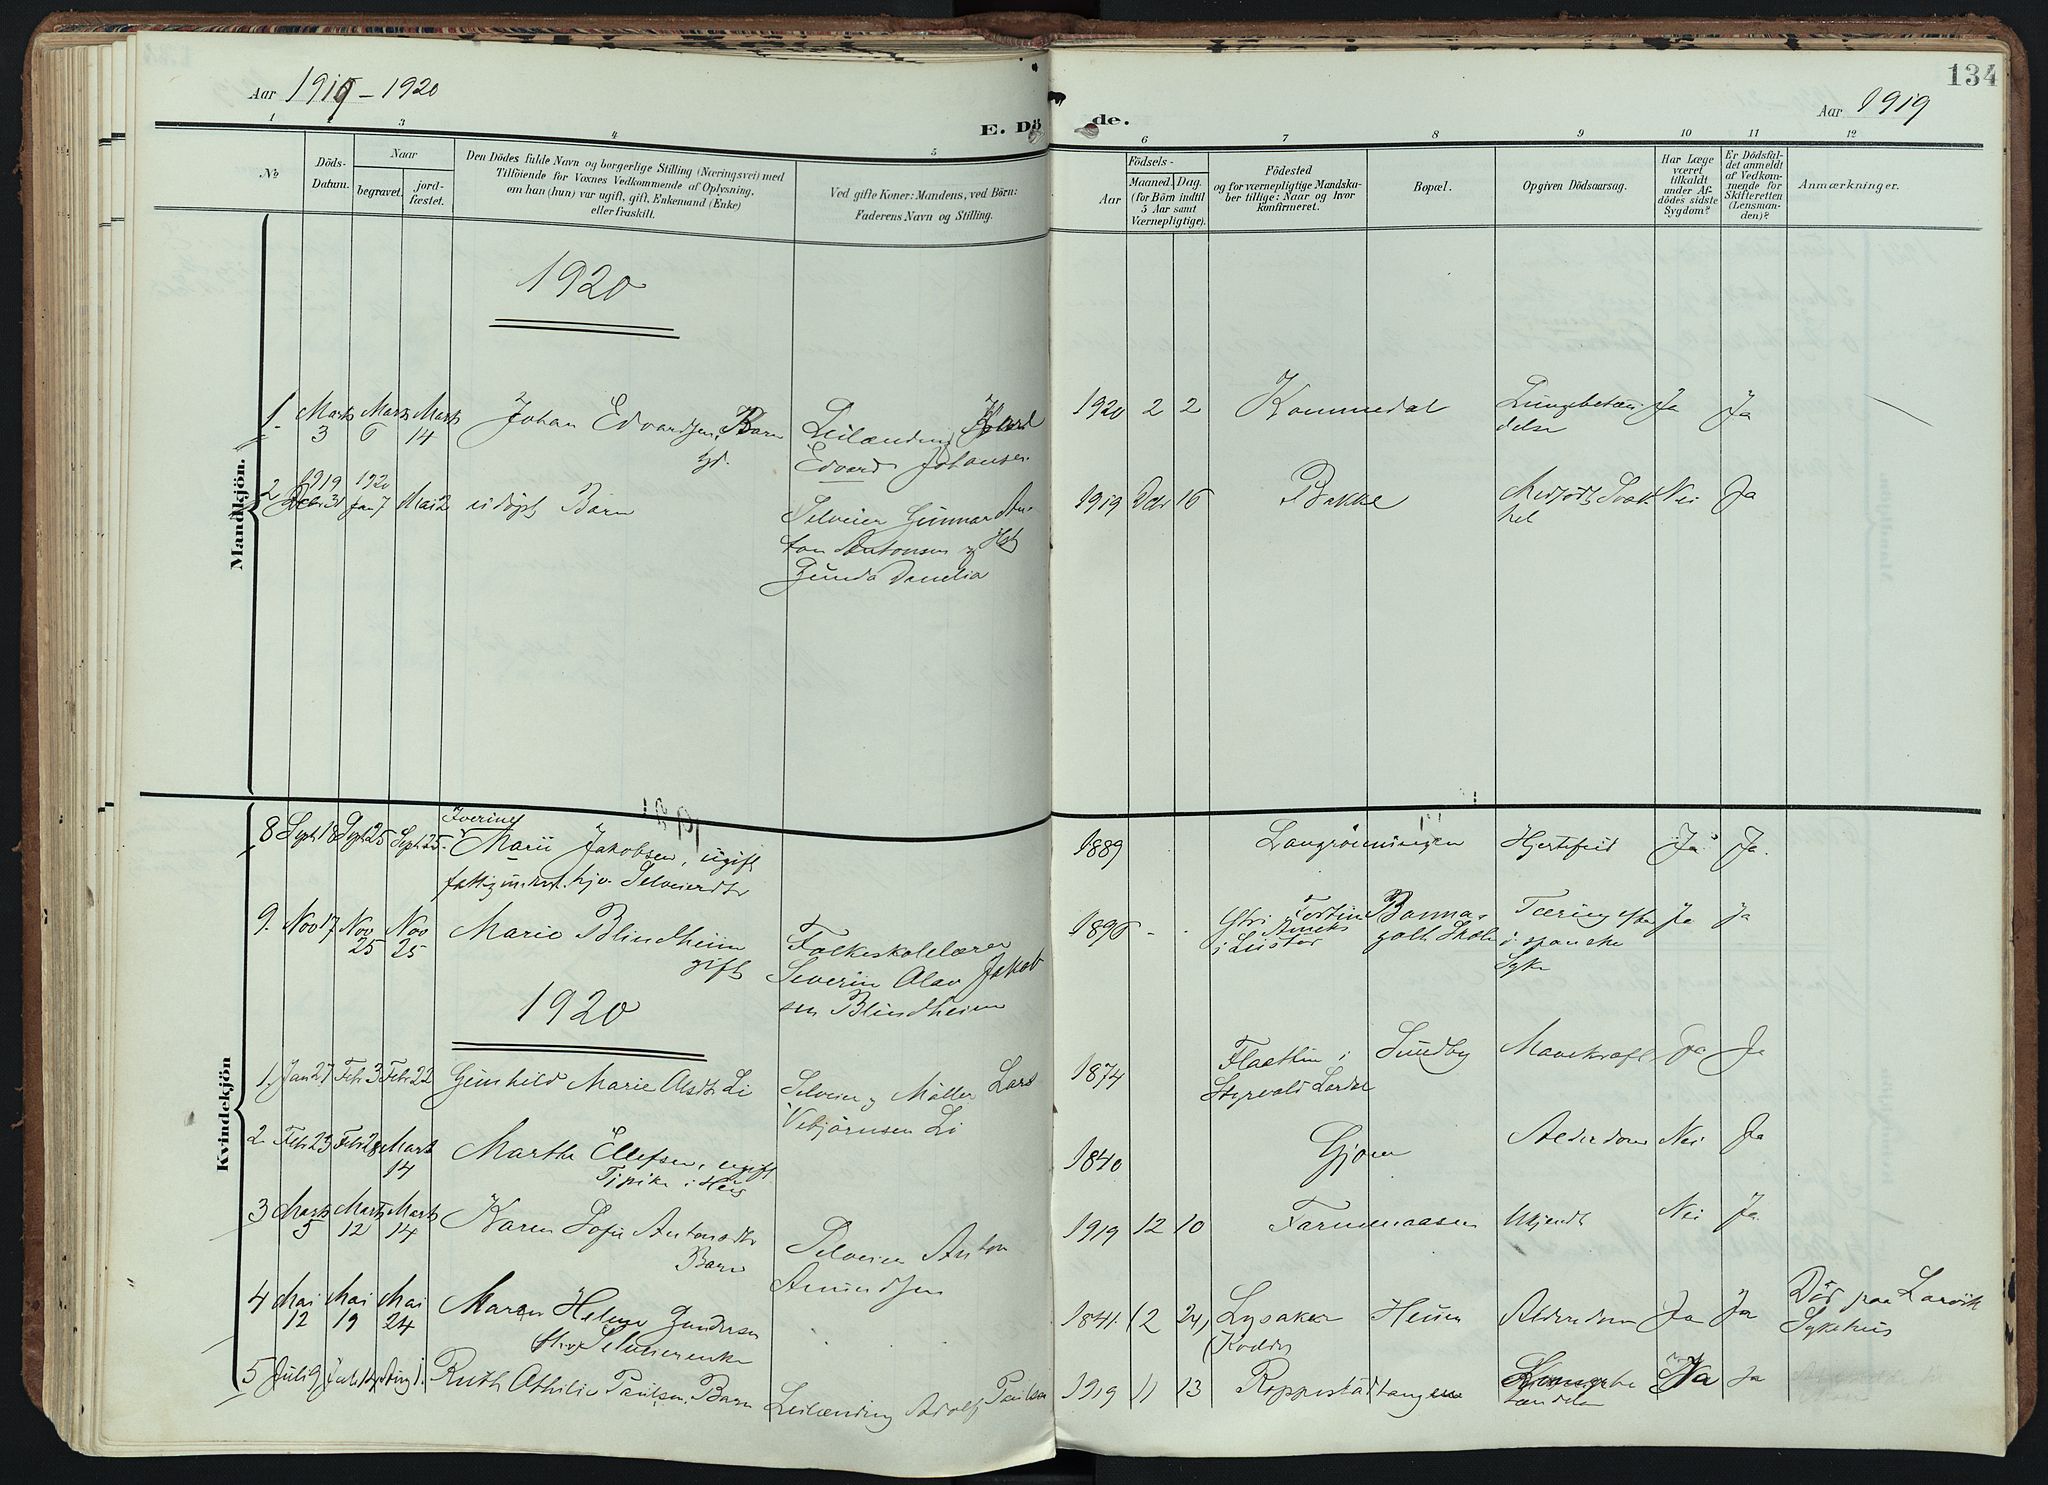 Aar 1919-1920
E. Dö
de.
134
Aar 1919
1 2 3 4 5 6 7 8 9 10 11 12
No
Döds-
Datum.
Naar
begravet.
jord-
fæstet.
Den Dödes fulde Navn og borgerlige Stilling (Næringsvei) med
Tilföiende for Voxnes Vedkommende af Oplysning,
om han (hun) var ugift, gift, Enkemand (Enke)
eller fraskilt.
Ved gifte Koner: Mandens, ved Börn:
Faderens Navn og Stilling.
Födsels-
Aar
Maaned. Dag.
(for Börn indtil
5 Aar samt
Værnepligtige).
Födested
og for værnepligtige Mandska-
ber tillige: Naar og hvor
Konfirmeret.
Bopæl.
Opgiven Dödsaarsag.
Har Læge
været
tilkaldt
under Af-
dödes sidste
Sygdom?
Er Dödsfal-
det anmeldt
af Vedkom-
mende for
Skifteretten
(Lensman-
den)?
Anmærkninger.
Mandkjön.
1920
1. Marts 3 Marts 6 Marts 14 Johan Edvardsen, Barn
Leilænding
Edvard Johansen
1920 2 2 Kommedal Lungebetæn
delse Ja Ja
2 1919 Decbr 31 1920 Jan 7 Mai 2 udøpt Barn
Selveier Gunnar An-
ton Antonsen og Hst
Gunda Danelia
1919 Dcbr 16 Bakke Medfødt Svak
het Nei Ja
Kvindekjön
8 Sept 18 Sept 25 Sept 25 Marii Jakobsen, ugift
Selveierdtr
1889 Langrønningen Hjertefeil Ja Ja.
9. Nov 17 Nov 25 Nov 25 Marie Blindheim
gift
Folkeskolelærer
Severin Olav Jakob
sen Blindheim
1896 i Luster Tæring efter
spanske
Syke Ja Ja
1920
1. Jan 27 Febr 3 Febr 22 Gunhild Marie Alsdtr Li
Selveier og Møller Lars
Vebjørnsen Li
1874 Flaatten i
Styrvold Lardal Sundby Mavekræft Ja Ja
2 Febr 23 Febr 28 Marts 14 Marthe Ellefsen, ugift
1840 Gjone Alderdom Nei Ja
3 Marts 5 Marts 12 Marts 14 Karen Sofie Antonsdtr
Barn
Selveier Anton
Amundsen
1919 12 10 Farmenaasen Ukjendt Nei Ja
4 Mai 12 Mai 19 Mai 24 Maren Helene Gundersen
Selveierenke
1841. (2 24) Lysaker
(Kodal) Heuen Alderdom Ja Ja Død paa Larvik
Sykehus
5 Juli 9 Juli 14 Aug 1. Ruth Othilie Paulsen, Barn
Leilænding Adolf Paulsen
1919 11 13 Roppestadtangen Ja Ja